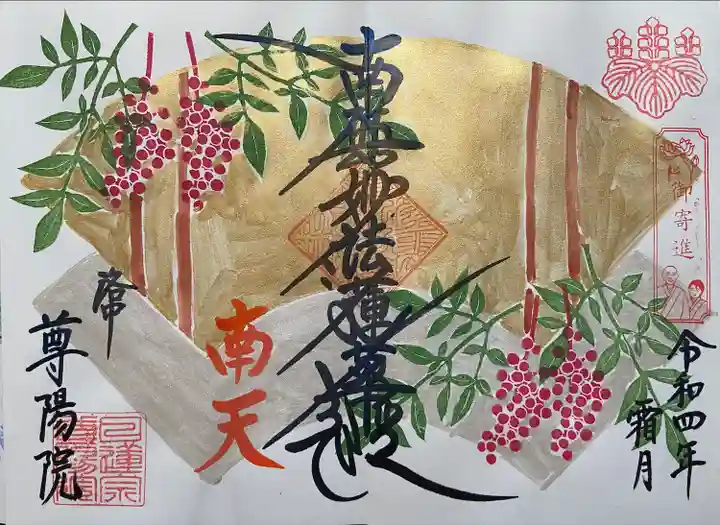 御寄進
令和四年
霜月
南無妙法蓮華経
南天
尊陽院
日蓮宗